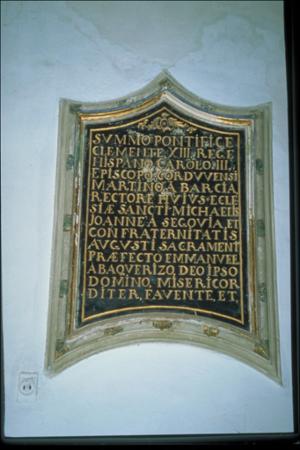 SVMMO PONTIFICE
CLEMENTE XIII, REGE
HISPANO CAROLO III,
EPISCOPO CORDVVENSI
MARTINO, A BARCIA,
RECTORE HVIVS ECLE
SIÆ SANCTI MICHAELIS
JOANNE A SEGOVIA, ET
CONFRATERNITATIS
AVGVSTI SACRAMENT
PRÆFECTO EMMANVEL
ABAQVERIZO, DEO IPSO
DOMINO, MISERICOR
DITER, FAVENTE, ET,